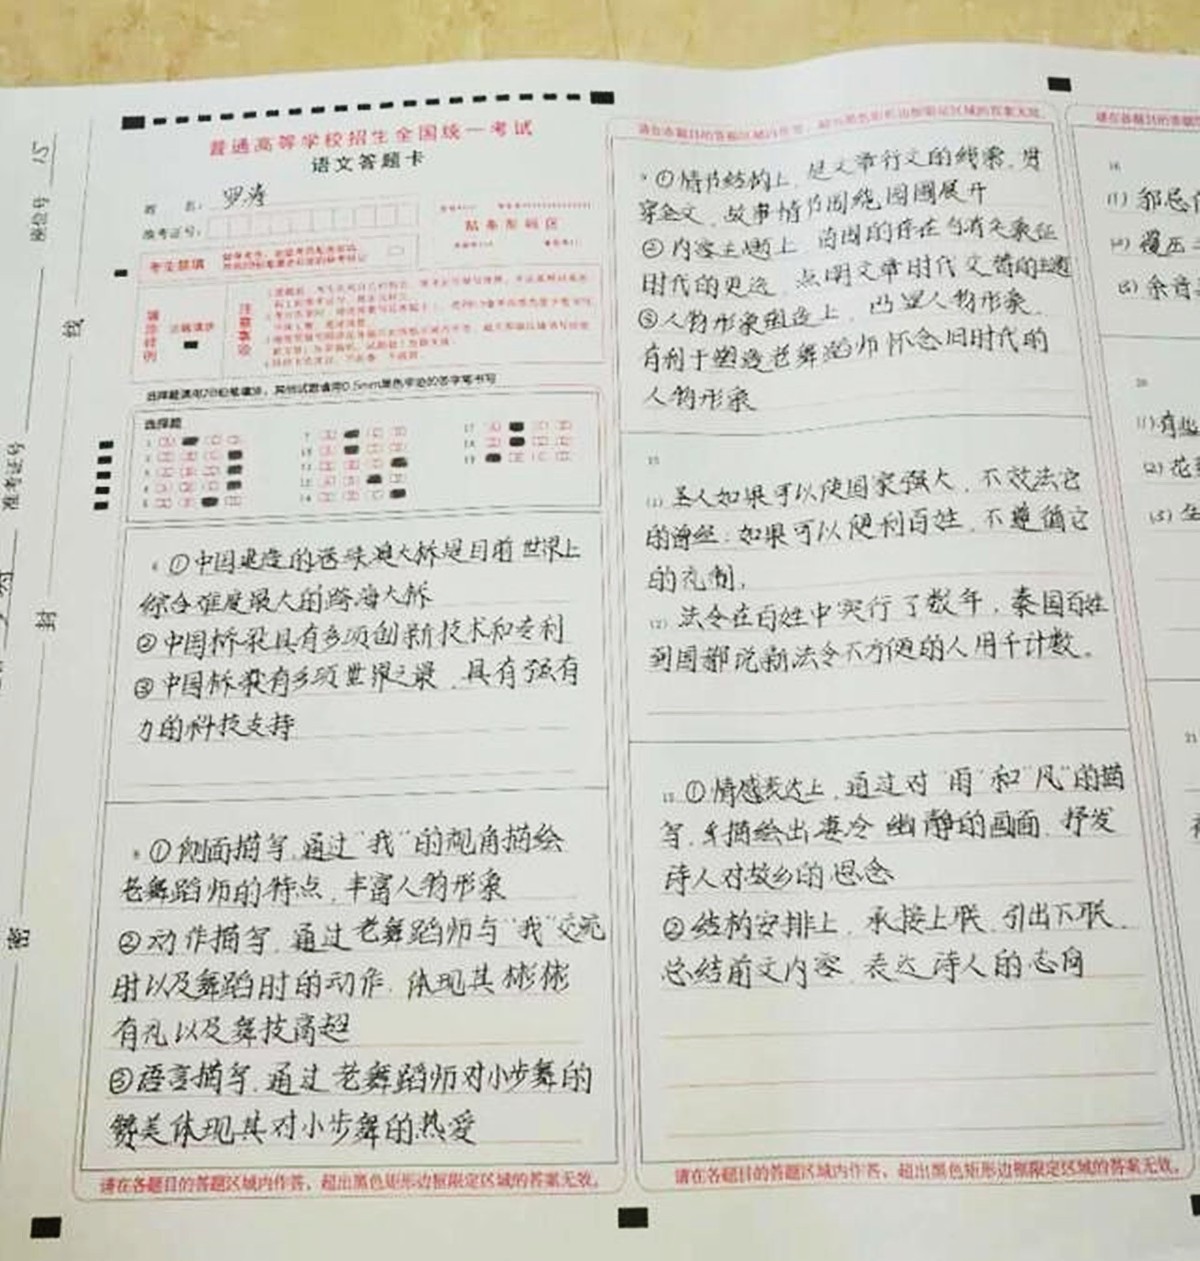 普通高等学校招生全国统一考试
语文答题卡
姓 名：
罗涛
准考证号：
贴条形码区
考生禁填
填涂样例
正确填涂
注意事项
选择题请用2B铅笔填涂，其他试题请用0.5mm黑色字迹的签字笔书写
选择题
6 ①中国建造的港珠澳大桥是目前世界上
综合难度最大的跨海大桥
②中国桥梁具有多项创新技术和专利
③中国桥获有多项世界之最，具有强有
力的科技支持
8 ①侧面描写，通过“我”的视角描绘
老舞蹈师的特点，丰富人物形象
②动作描写，通过老舞蹈师与“我”交流
时以及舞蹈时的动作，体现其彬彬
有礼以及舞技高超
③语言描写，通过老舞蹈师对小步舞的
赞美体现其对小步舞的热爱
请在各题目的答题区域内作答，超出黑色矩形边框限定区域的答案无效。
请在各题目的答题区域内作答，超出黑色矩形边框限定区域的答案无效
9 ①情节结构上，是文章行文的线索，贯
穿全文，故事情节围绕园圃展开
②内容主题上，苗圃的存在与消失象征
时代的更迭，点明文章时代交替的主题
③人物形象塑造上，凸显人物形象，
有利于塑造老舞蹈师怀念旧时代的
人物形象
13
(1) 圣人如果可以使国家强大，不效法它
的曾经；如果可以便利百姓，不遵循它
的礼制，
(2) 法令在百姓中实行了数年，秦国百姓
到国都说新法令不方便的人用千计数。
15 ①情感表达上，通过对“雨”和“风”的描
写，描绘出凄冷幽静的画面，抒发
诗人对故乡的思念
②结构安排上，承接上联，引出下联，
总结前文内容，表达诗人的志向
请在各题目的答题区域内作答，超出黑色矩形边框限定区域的答案无效。
16
20
(1)有些
(2)花
21
座位号 15
准考证号
线
封
密